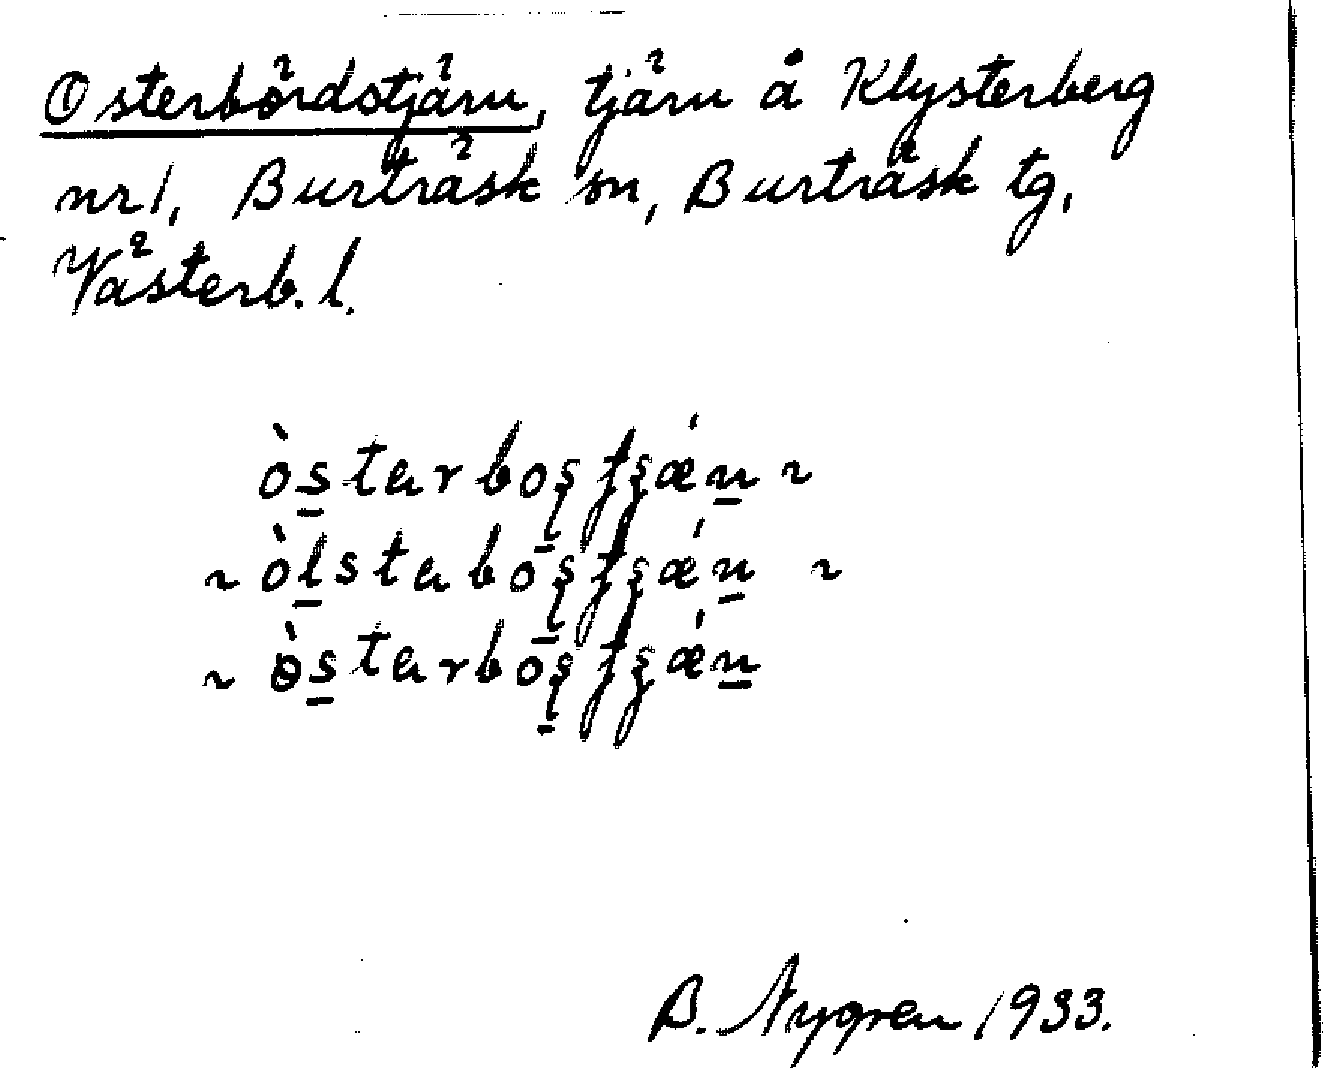 Österbördstjärn, tjärn å Klysterberg
nr 1, Burträsk sn, Burträsk tg,
Västerb. l.
òs̲tarbo̲ʂfʂǽn̲ ~
~ òl̲stabo̲ʂfʂǽn̲ ~
~ ɵ̀s̲tarbo̲ʂfʂǽn̲
B. Nygren 1933.